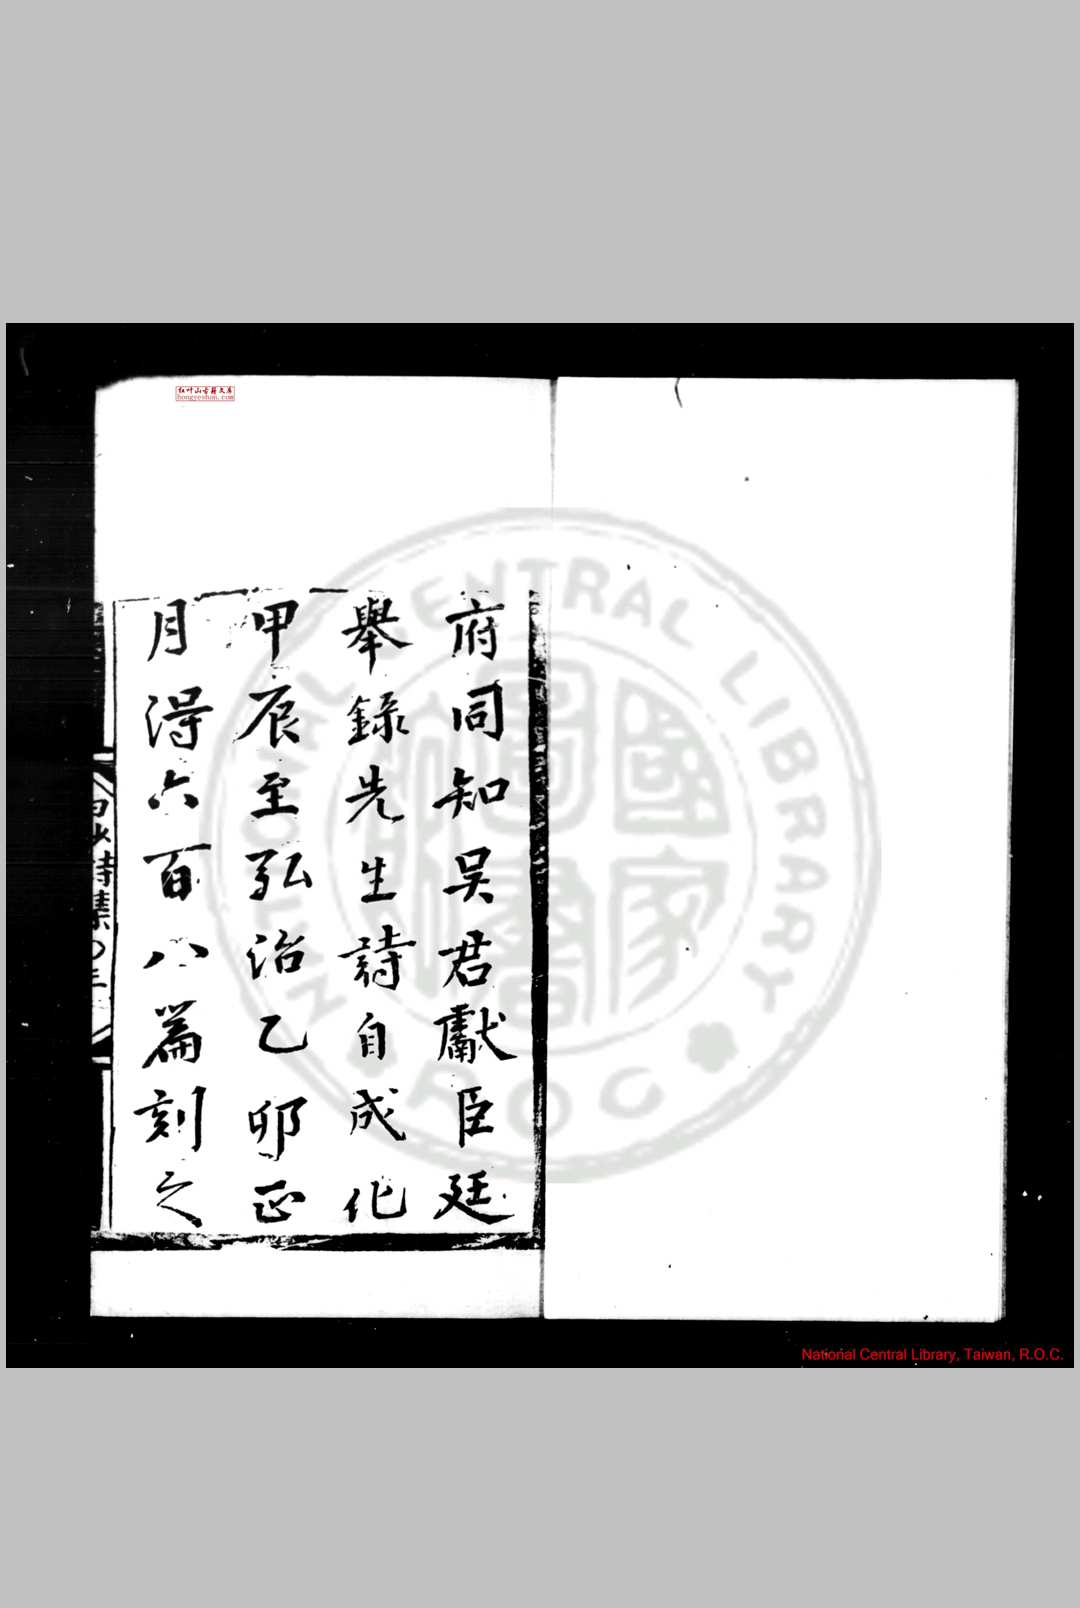 府同知吴君獻臣廷
舉錄先生詩自成化
甲辰至弘治乙卯正
月得六百八篇刻之
詩集〇
红叶山古籍文库
hongyeshan.com
NATIONAL CENTRAL LIBRARY
R.O.C
國家圖書
National Central Library, Taiwan, R.O.C.